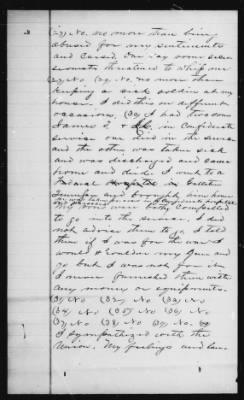 (27) No, no more than being
abused for my sentiments
and Cursed. One day some
threatened to whip me
(28) No (29) No, no more than
keeping a sick soldier at my
house. I did this on different
occasions, (30) I had two sons
James F. in Confederate
service one died in the service
and the other was taken sick
and was discharged and came
home and died. I went to a
in Gallatin
Tennessee and brought him home
My sons were both compelled
to go into the service. I did
not advise them to go. I told
them if I was for the war I
would shoulder my gun and
go but I was not for it
I never furnished them with
any money or equipments.
(31) No (32) No (33) No
(34) No (35) No (36) No
(37) No (38) No (39) No.
I sympathized with the
Union. My feelings and lan-